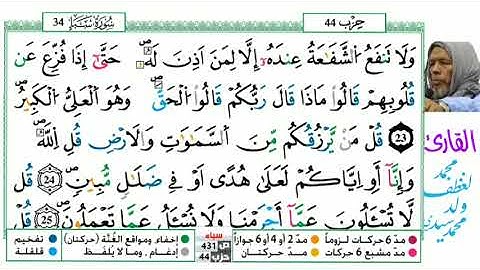 سُورَةُ سَبَإٍ 34
حِزْب 44
وَلَا تَنفَعُ الشَّفَـٰعَةُ عِندَهُۥٓ إِلَّا لِمَنْ أَذِنَ لَهُۥ حَتَّىٰٓ إِذَا فُزِّعَ عَن
قُلُوبِهِمْ قَالُوا۟ مَاذَا قَالَ رَبُّكُمْ قَالُوا۟ الْحَقَّ وَهُوَ الْعَلِىُّ الْكَبِيرُ
23 قُلْ مَنْ يَّرْزُقُكُم مِّنَ السَّمَـٰوَٰتِ وَالَارْضِ قُلِ اللَّهُ
وَإِنَّآ أَوِ اِيَّاكُمْ لَعَلَىٰ هُدًى أَوْ فِى ضَلَـٰلٍ مُّبِينٍ 24 قُل
لَّا تُسْـَٔلُونَ عَمَّآ أَجْرَمْنَا وَلَا نُسْـَٔلُ عَمَّا تَعْمَلُونَ 25 قُلْ
القارئ
محمد
لغظف
ولد
محمد سيدي
مدّ 6 حركات لزوماً
مدّ 2 أو 4 أو 6 جوازاً
إخفاء، ومواقع الغُنَّة (حركتان)
تفخيم
مدّ مشبع 6 حركات
مدّ حركتان
إدغام، وما لا يُلفَظ
قلقلة
سبإ
431
حزب
44